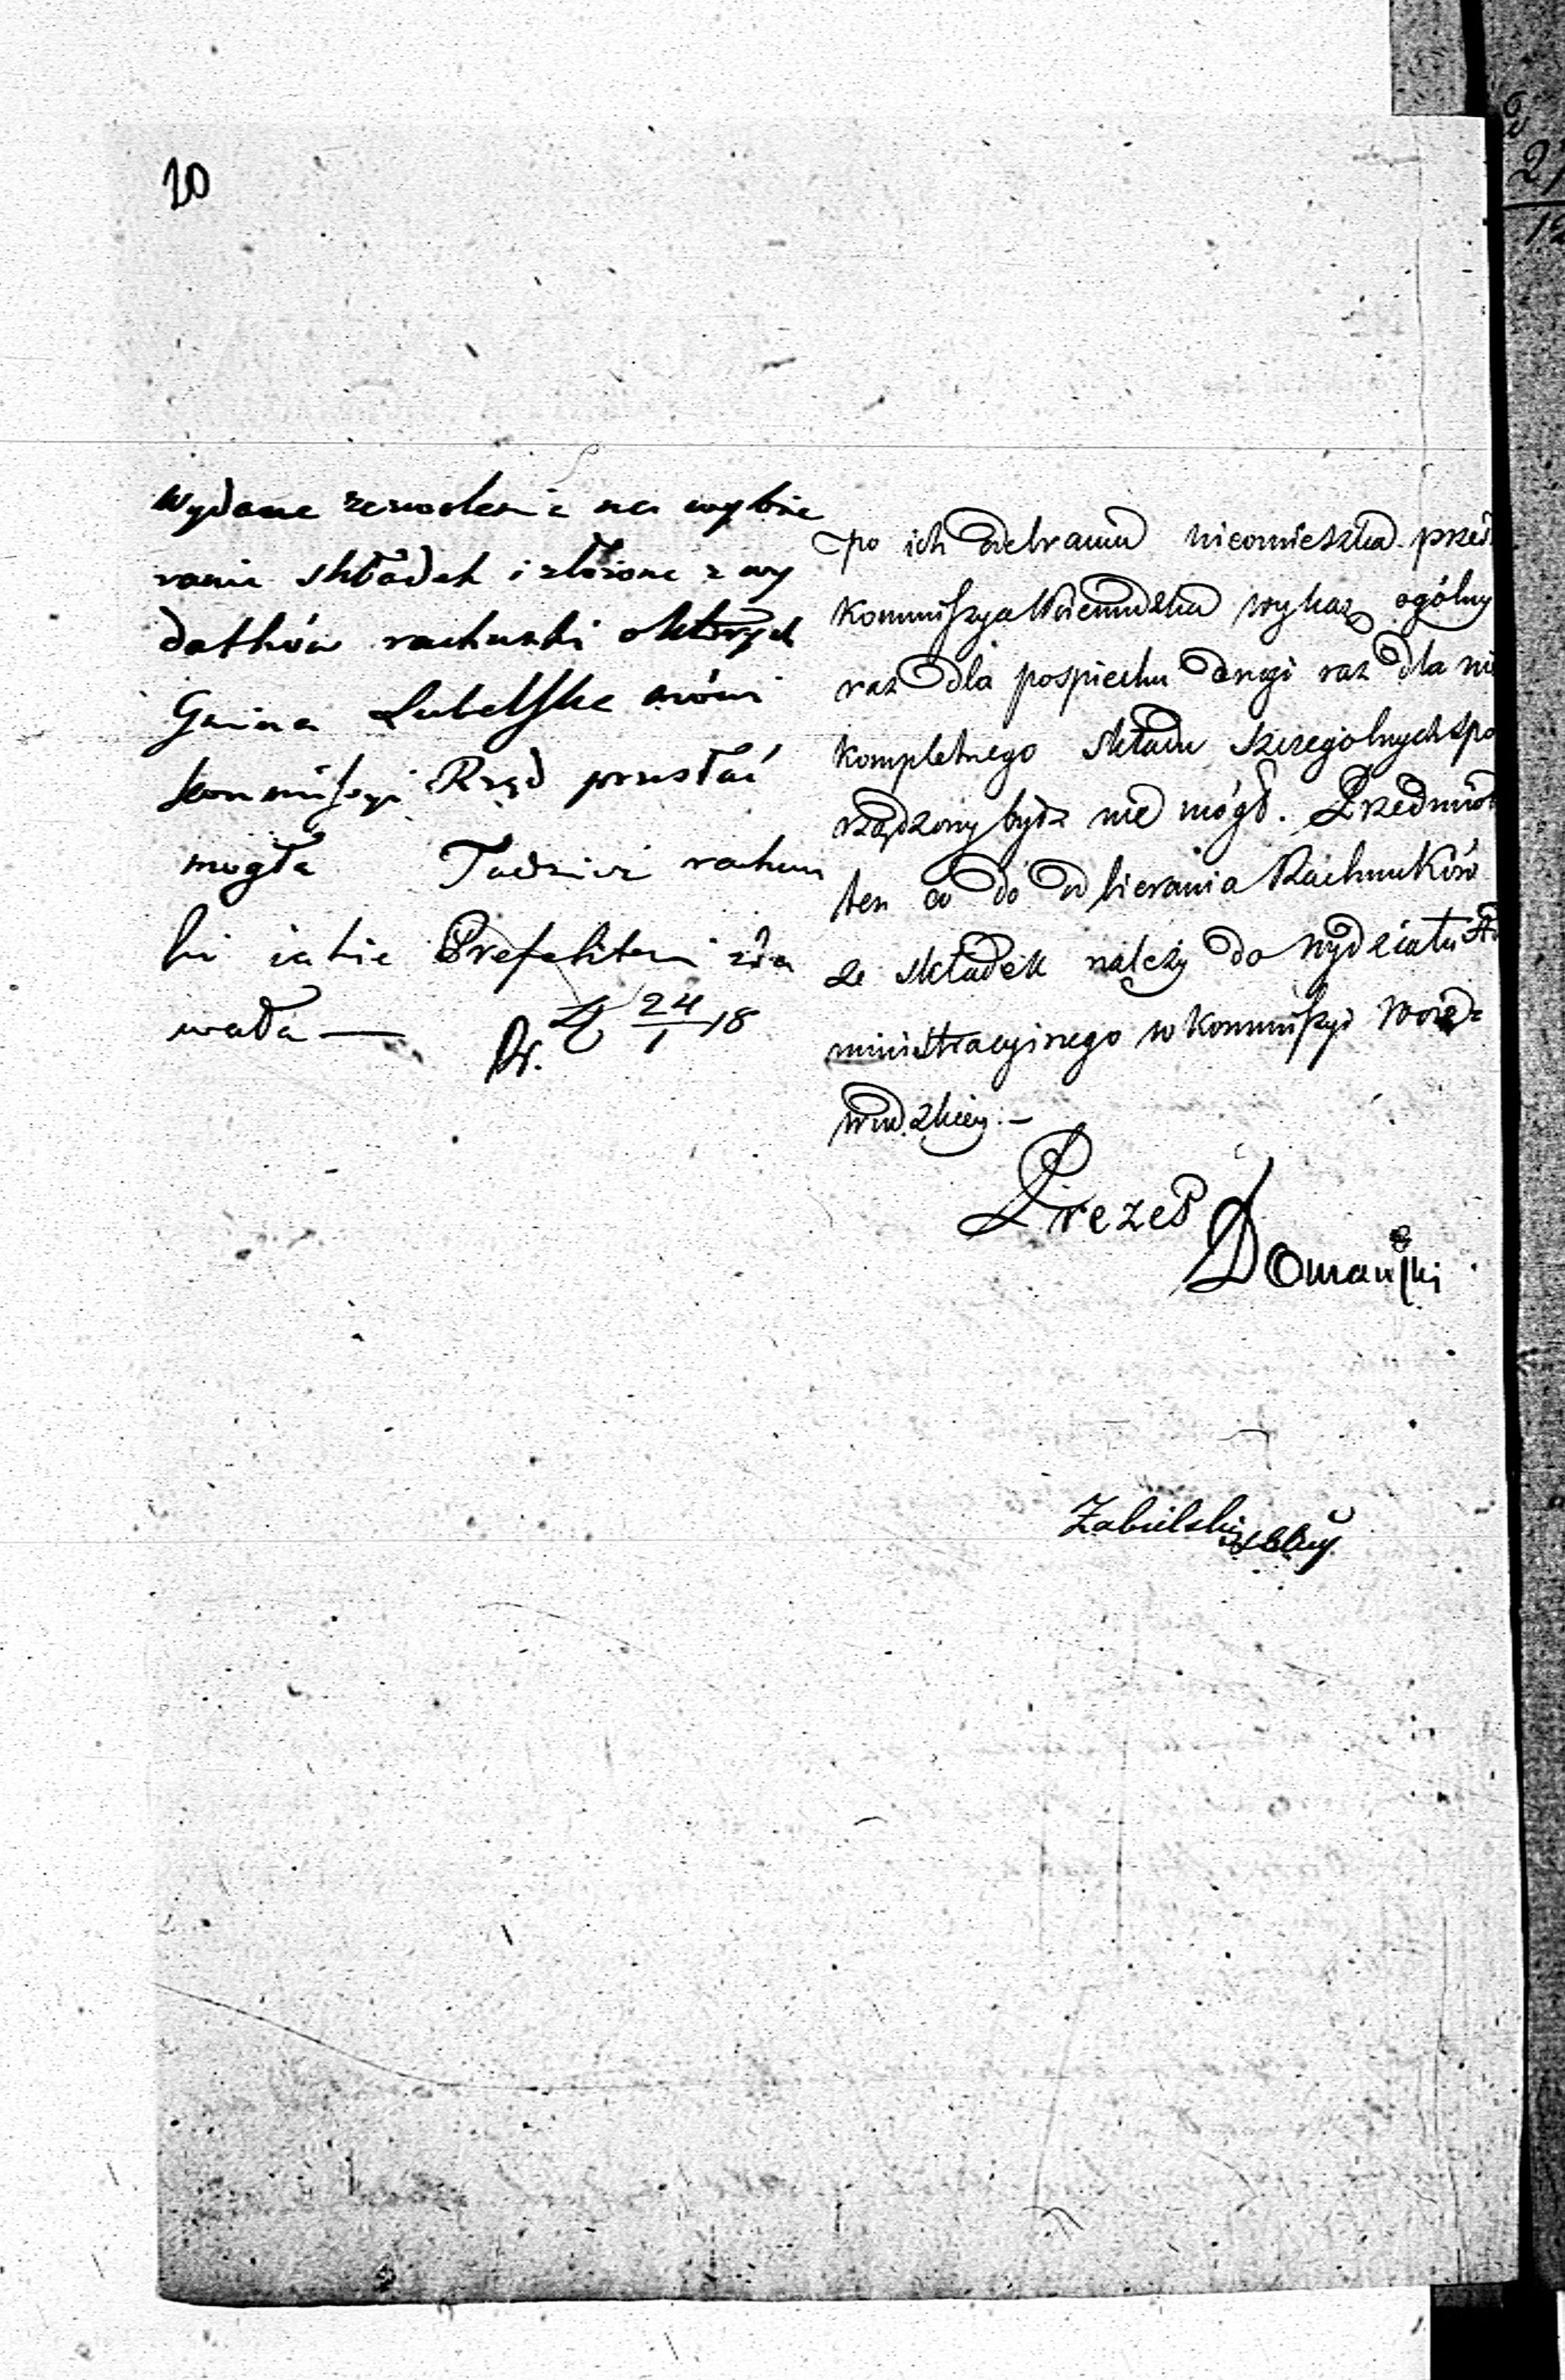 20
Wydane zezwolenie na wybie
ranie składek i złożone z wy
datków rachunki o których
Gmina Lubelska mówi
kommissyi Rząd przesłać
mogła Tudzież rachun
ki iakie Prefektom zda
wała —
24/1 18
po ich odebraniu nieomieszka prześ
Kommissya Woiewudzka wykaz ogólny
raz dla pospiechu drugi raz dla nie
kompletnego składu szczegolnych spo
rządzony bydz nie mógł. Przedmiot
ten co do odbierania Rachunków
ze składek należy do Wydziału Ad
ministracyinego w Kommissyi Woie=
wudzkiey.—
Prezes
Domański
Zabielski